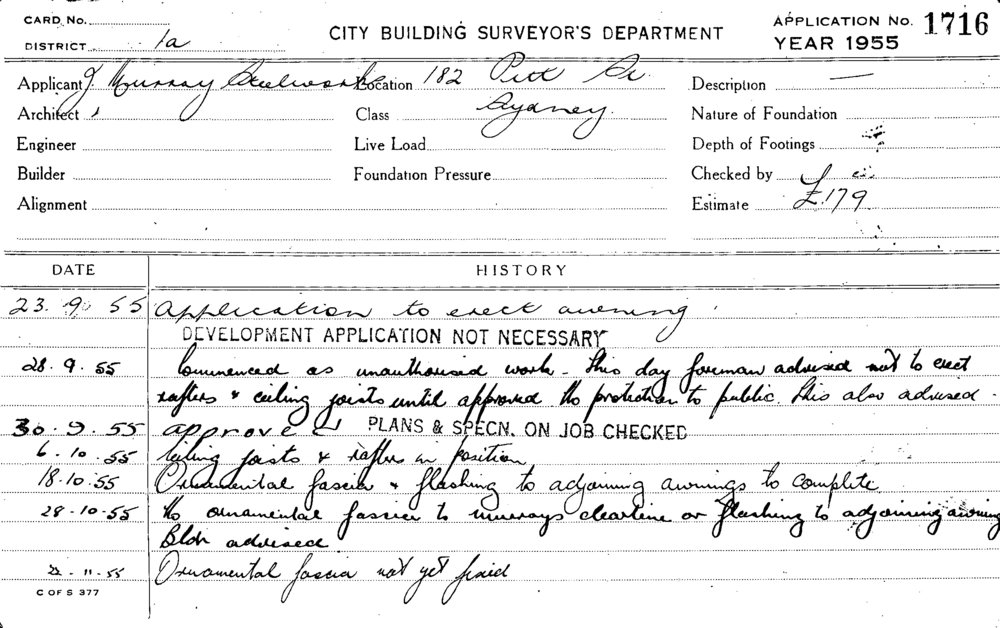 CARD No.
DISTRICT 1a
CITY BUILDING SURVEYOR'S DEPARTMENT
APPLICATION No. 1716
YEAR 1955
Applicant J Murray Location 182 Pitt St Description —
Architect Class Sydney. Nature of Foundation
Engineer Live Load Depth of Footings
Builder Foundation Pressure Checked by
Alignment Estimate £179
DATE HISTORY
23.9.55 Application to erect awning.
DEVELOPMENT APPLICATION NOT NECESSARY
28.9.55 Commenced as unauthorised work - This day foreman advised not to erect
rafters & ceiling joists until approved. No protection to public. This also advised.
30.9.55 approved PLANS & SPECN. ON JOB CHECKED
6.10.55 Ceiling joists & rafters in position
18.10.55 Ornamental fascia & flashing to adjoining awnings to complete
28-10-55 No ornamental fascia to or flashing to adjoining awning
Bldr advised.
11.55 Ornamental fascia not yet
C OF S 377